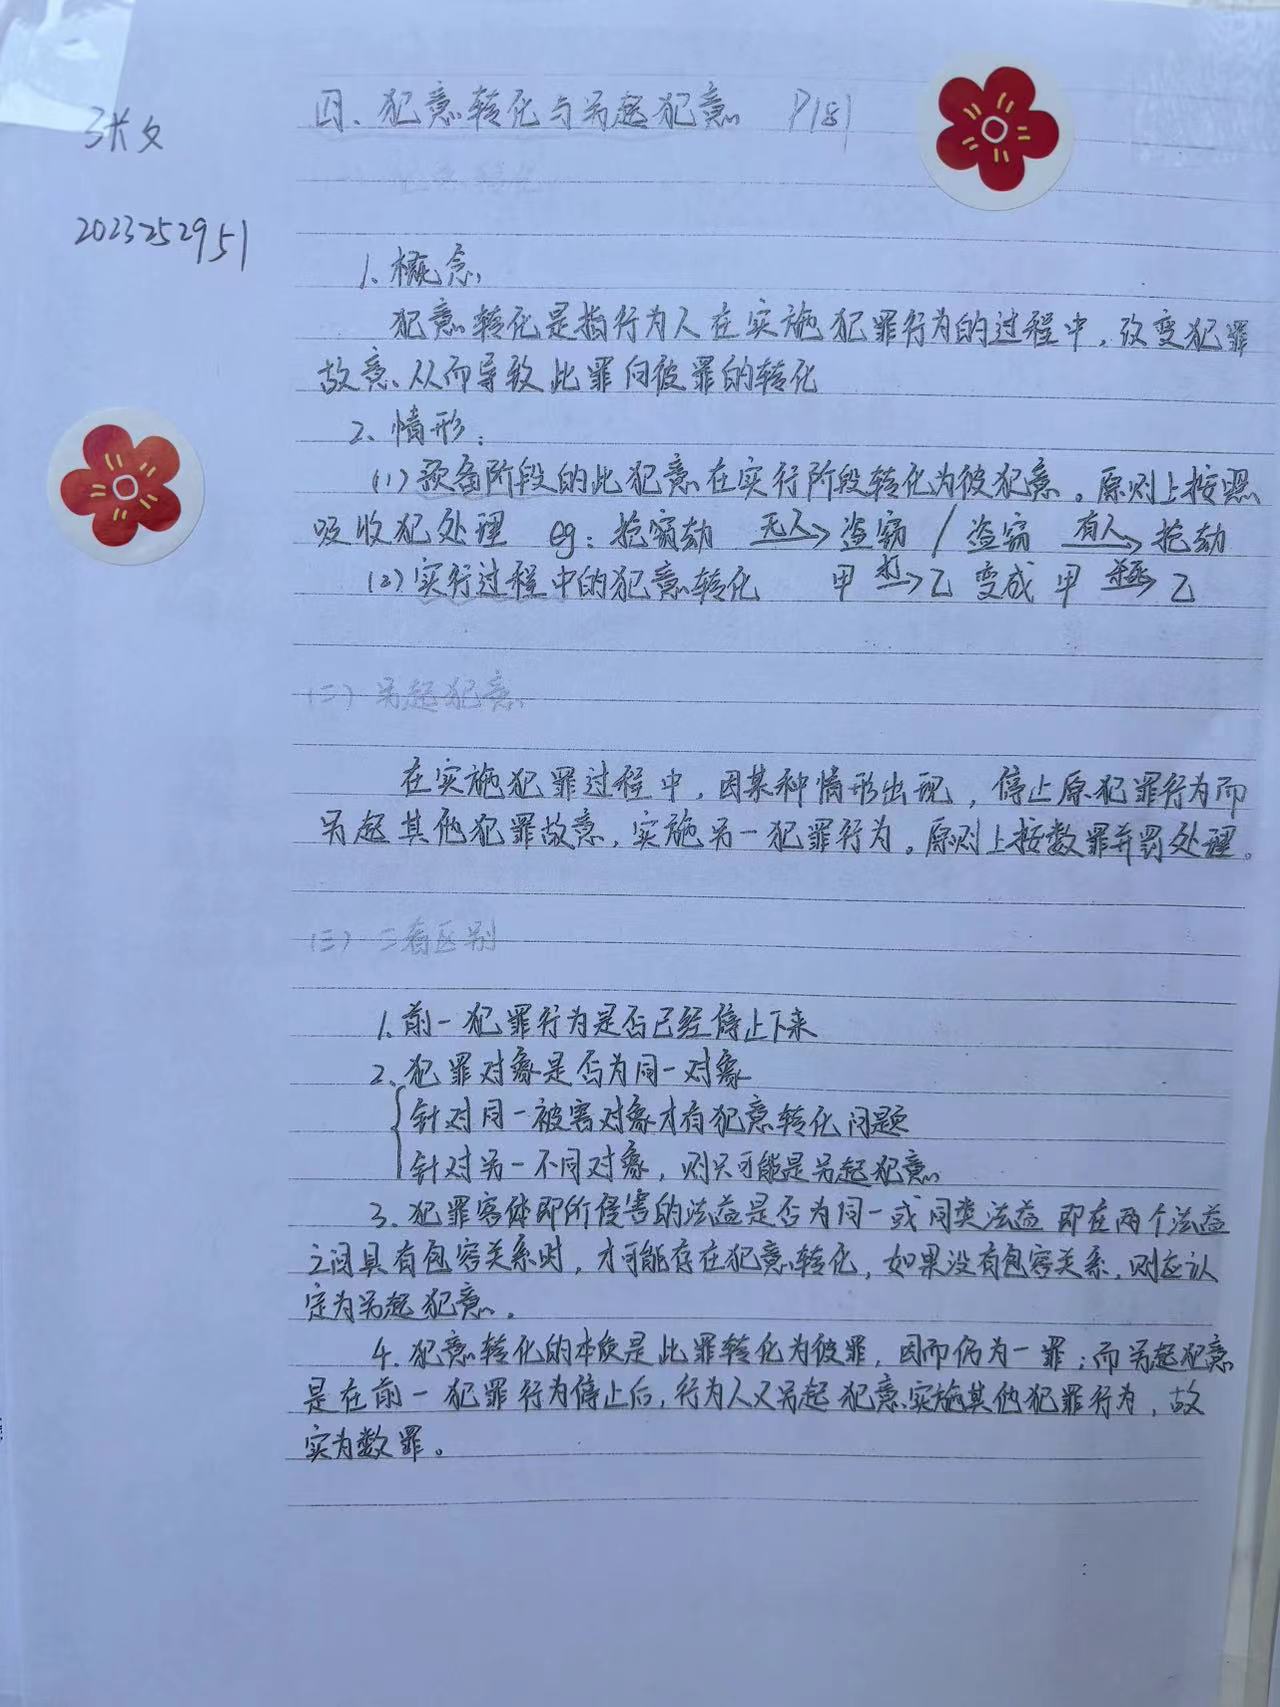 张文
2023252951
四、犯意转化与另起犯意 P181
1、概念
犯意转化是指行为人在实施犯罪行为的过程中，改变犯罪
故意、从而导致此罪向彼罪的转化
2、情形：
(1) 预备阶段的此犯意在实行阶段转化为彼犯意。原则上按照
吸收犯处理 eg：抢劫 无人→ 盗窃 / 盗窃 有人→ 抢劫
(2) 实行过程中的犯意转化 甲 打→ 乙 变成 甲 杀死→ 乙
(二) 另起犯意
在实施犯罪过程中，因某种情形出现，停止原犯罪行为而
另起其他犯罪故意，实施另一犯罪行为。原则上按数罪并罚处理。
(三) 二者区别
1、前一犯罪行为是否已经停止下来
2、犯罪对象是否为同一对象
针对同一被害对象才有犯意转化问题
针对另一不同对象，则只可能是另起犯意
3、犯罪客体即所侵害的法益是否为同一或同类法益 即在两个法益
之间具有包容关系时，才可能存在犯意转化，如果没有包容关系，则应认
定为另起犯意。
4、犯意转化的本质是此罪转化为彼罪，因而仍为一罪；而另起犯意
是在前一犯罪行为停止后，行为人又另起犯意实施其他犯罪行为，故
实为数罪。